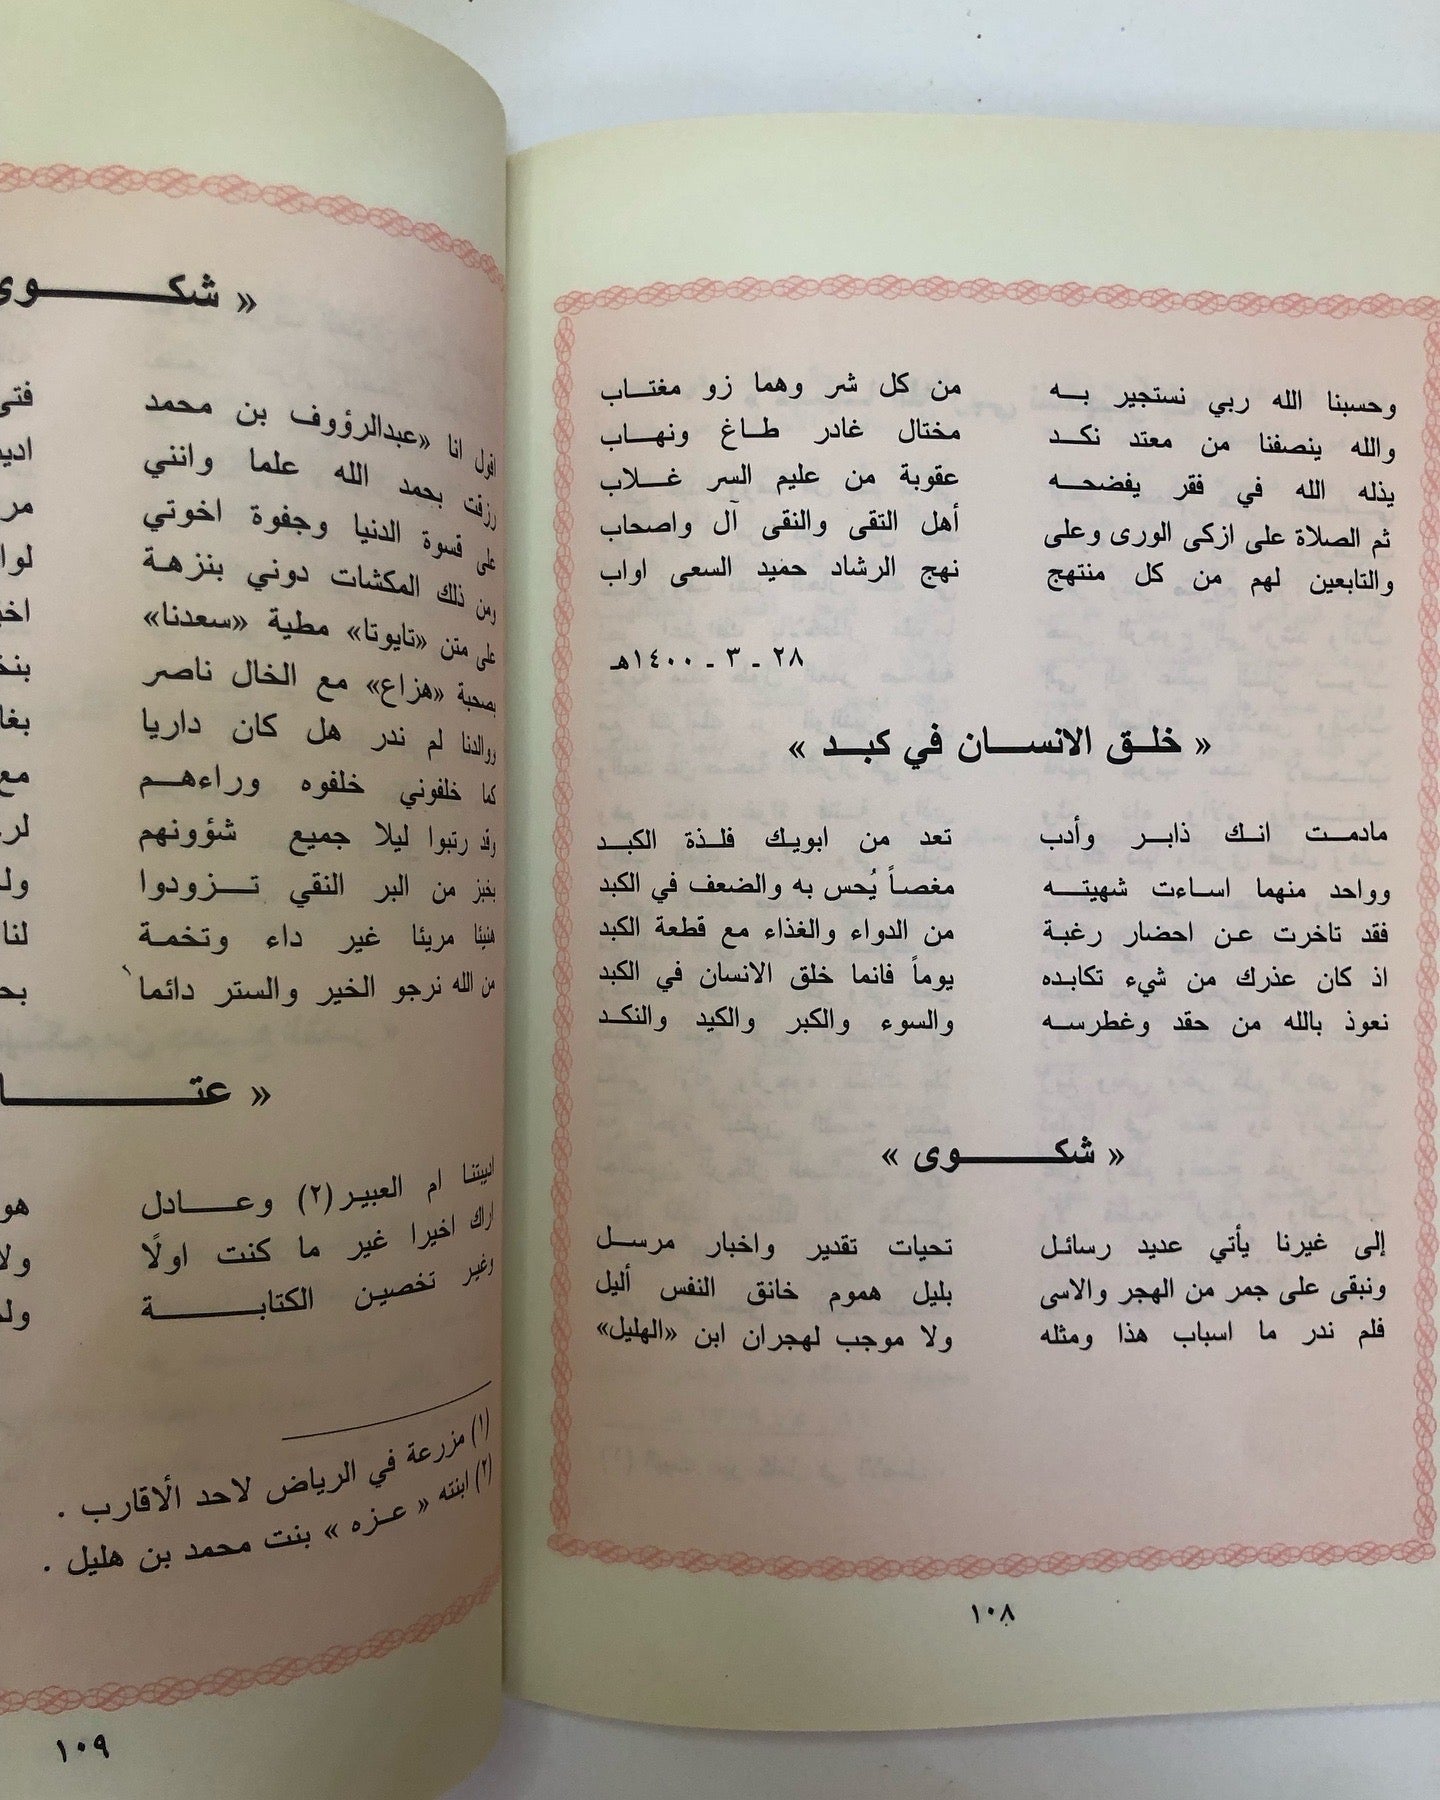 وحسبنا الله ربي نستجير بـه من كل شر وهما زو مغتـاب
والله ينصفنا من معتد نكـد مختال غادر طـاغ ونهـاب
يذله الله في فقر يفضحـه عقوبة من عليم السر غـلاب
ثم الصلاة على ازكى الورى وعلى أهل التقى والنقى آل واصحاب
والتابعين لهم من كل منتهج نهج الرشاد حميد السعى اواب
٢٨ ـ ٣ ـ ١٤٠٠هـ
« خلـق الانسـان في كبـد »
مادمـت انـك ذابـر وأدب تعد من ابويـك فلـذة الكبـد
وواحد منهما اسـاءت شهيتـه مغصاً يُحس به والضعف في الكبد
فقد تاخرت عـن احضار رغبة من الدواء والغذاء مع قطعة الكبد
اذ كان عذرك من شيء تكابده يوماً فانما خلق الانسان في الكبد
نعوذ بالله من حقد وغطرسـه والسوء والكبر والكيد والنكـد
« شكـوى »
إلى غيرنا يأتي عديد رسائـل تحيات تقدير واخبار مرسـل
ونبقى على جمر من الهجر والاسى بليل هموم خانق النفس أليل
فلم ندر ما اسباب هذا ومثله ولا موجب لهجران ابن «الهليل»
١٠٨
« شكـوى
اقول انا «عبدالرؤوف بن محمد فتى
رزقت بحمد الله علما وانني
على قسوة الدنيا وجفوة اخوتي
ومن ذلك المكشات دوني بنزهـة
على متن «تايوتا» مطية «سعدنا»
بصحبة «هزاع» مع الخال ناصر
ووالدنا لم ندر هل كان داريا
كما خلفوني خلفوه وراءهـم مع
وقد رتبوا ليلا جميع شؤونهم
بخبز من البر النقي تـزودوا
هنيئا مريئا غير داء وتخمـة لنا
من الله نرجو الخير والستر دائما
« عتـا
اديبتنا ام العبيـر (٢) وعـادل
اراك اخيرا غير ما كنت اولًا ولا
وغير تخصين الكتابـة
(١) مزرعة في الرياض لاحد الأقارب .
(٢) ابنته « عـزه » بنت محمد بن هليل .
١٠٩